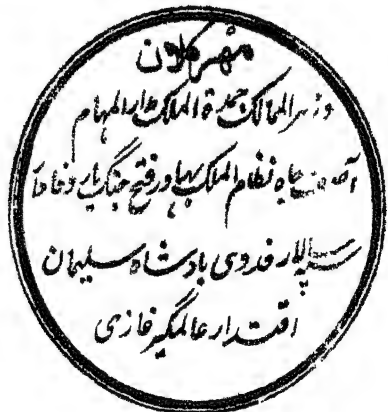 مهر کلان
وزیر الممالک جملة الملک مدار المهام
آصف جاه نظام الملک بهادر فتح جنگ یار وفادار
سپه سالار فدوی بادشاه سلیمان
اقتدار عالمگیر غازی